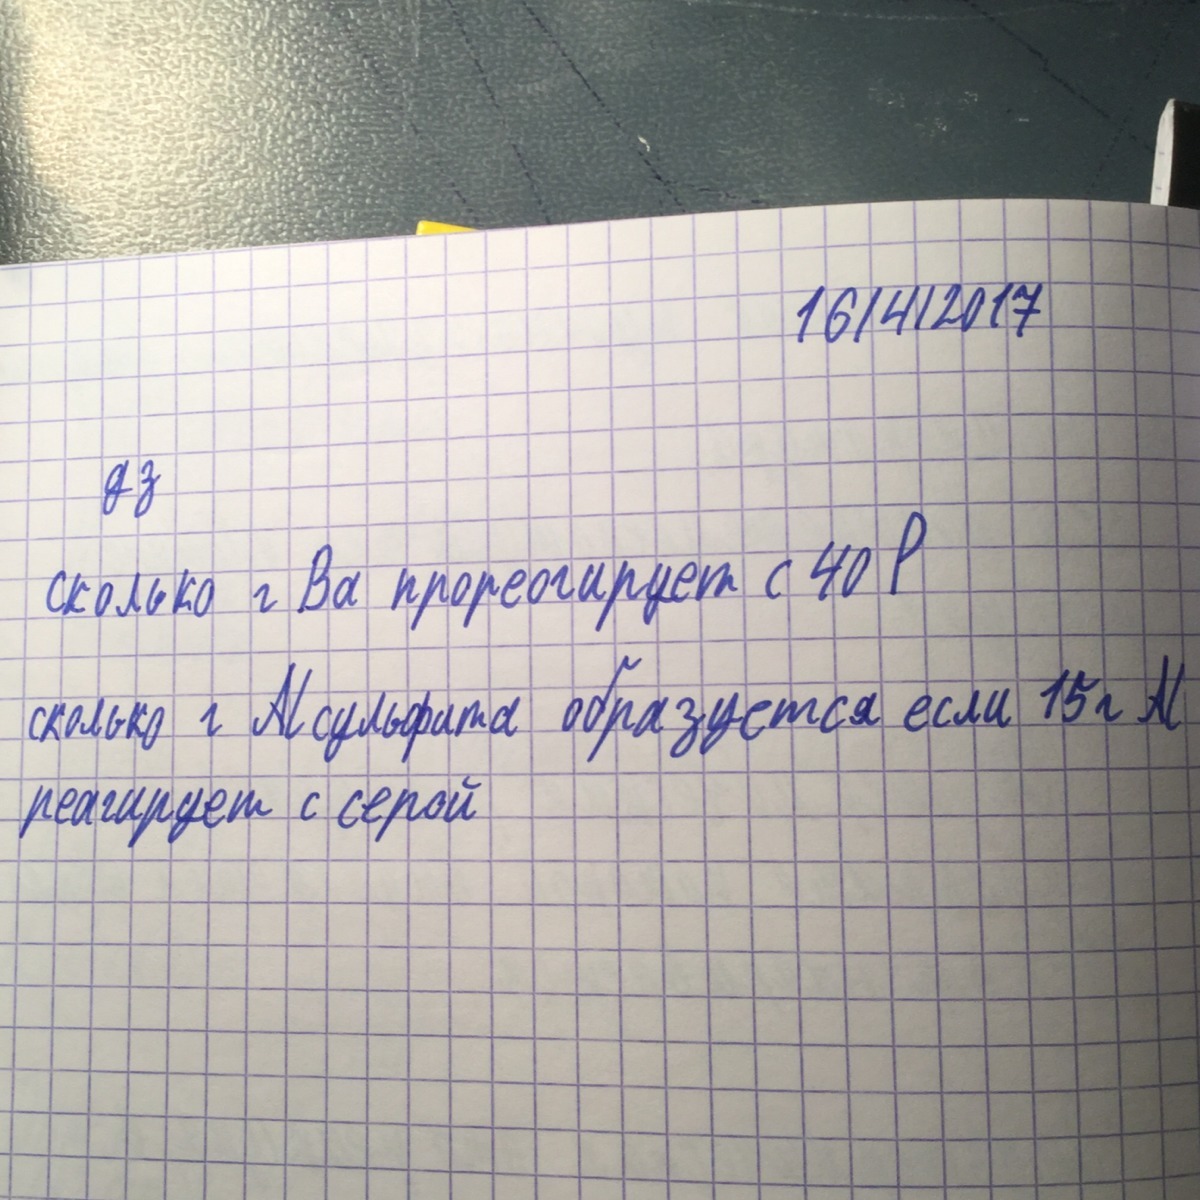 16/4/2017
дз
сколько г Ba прореогирует с 40 P
сколько г Al сульфита образуется если 15г Al
реагирует с серой